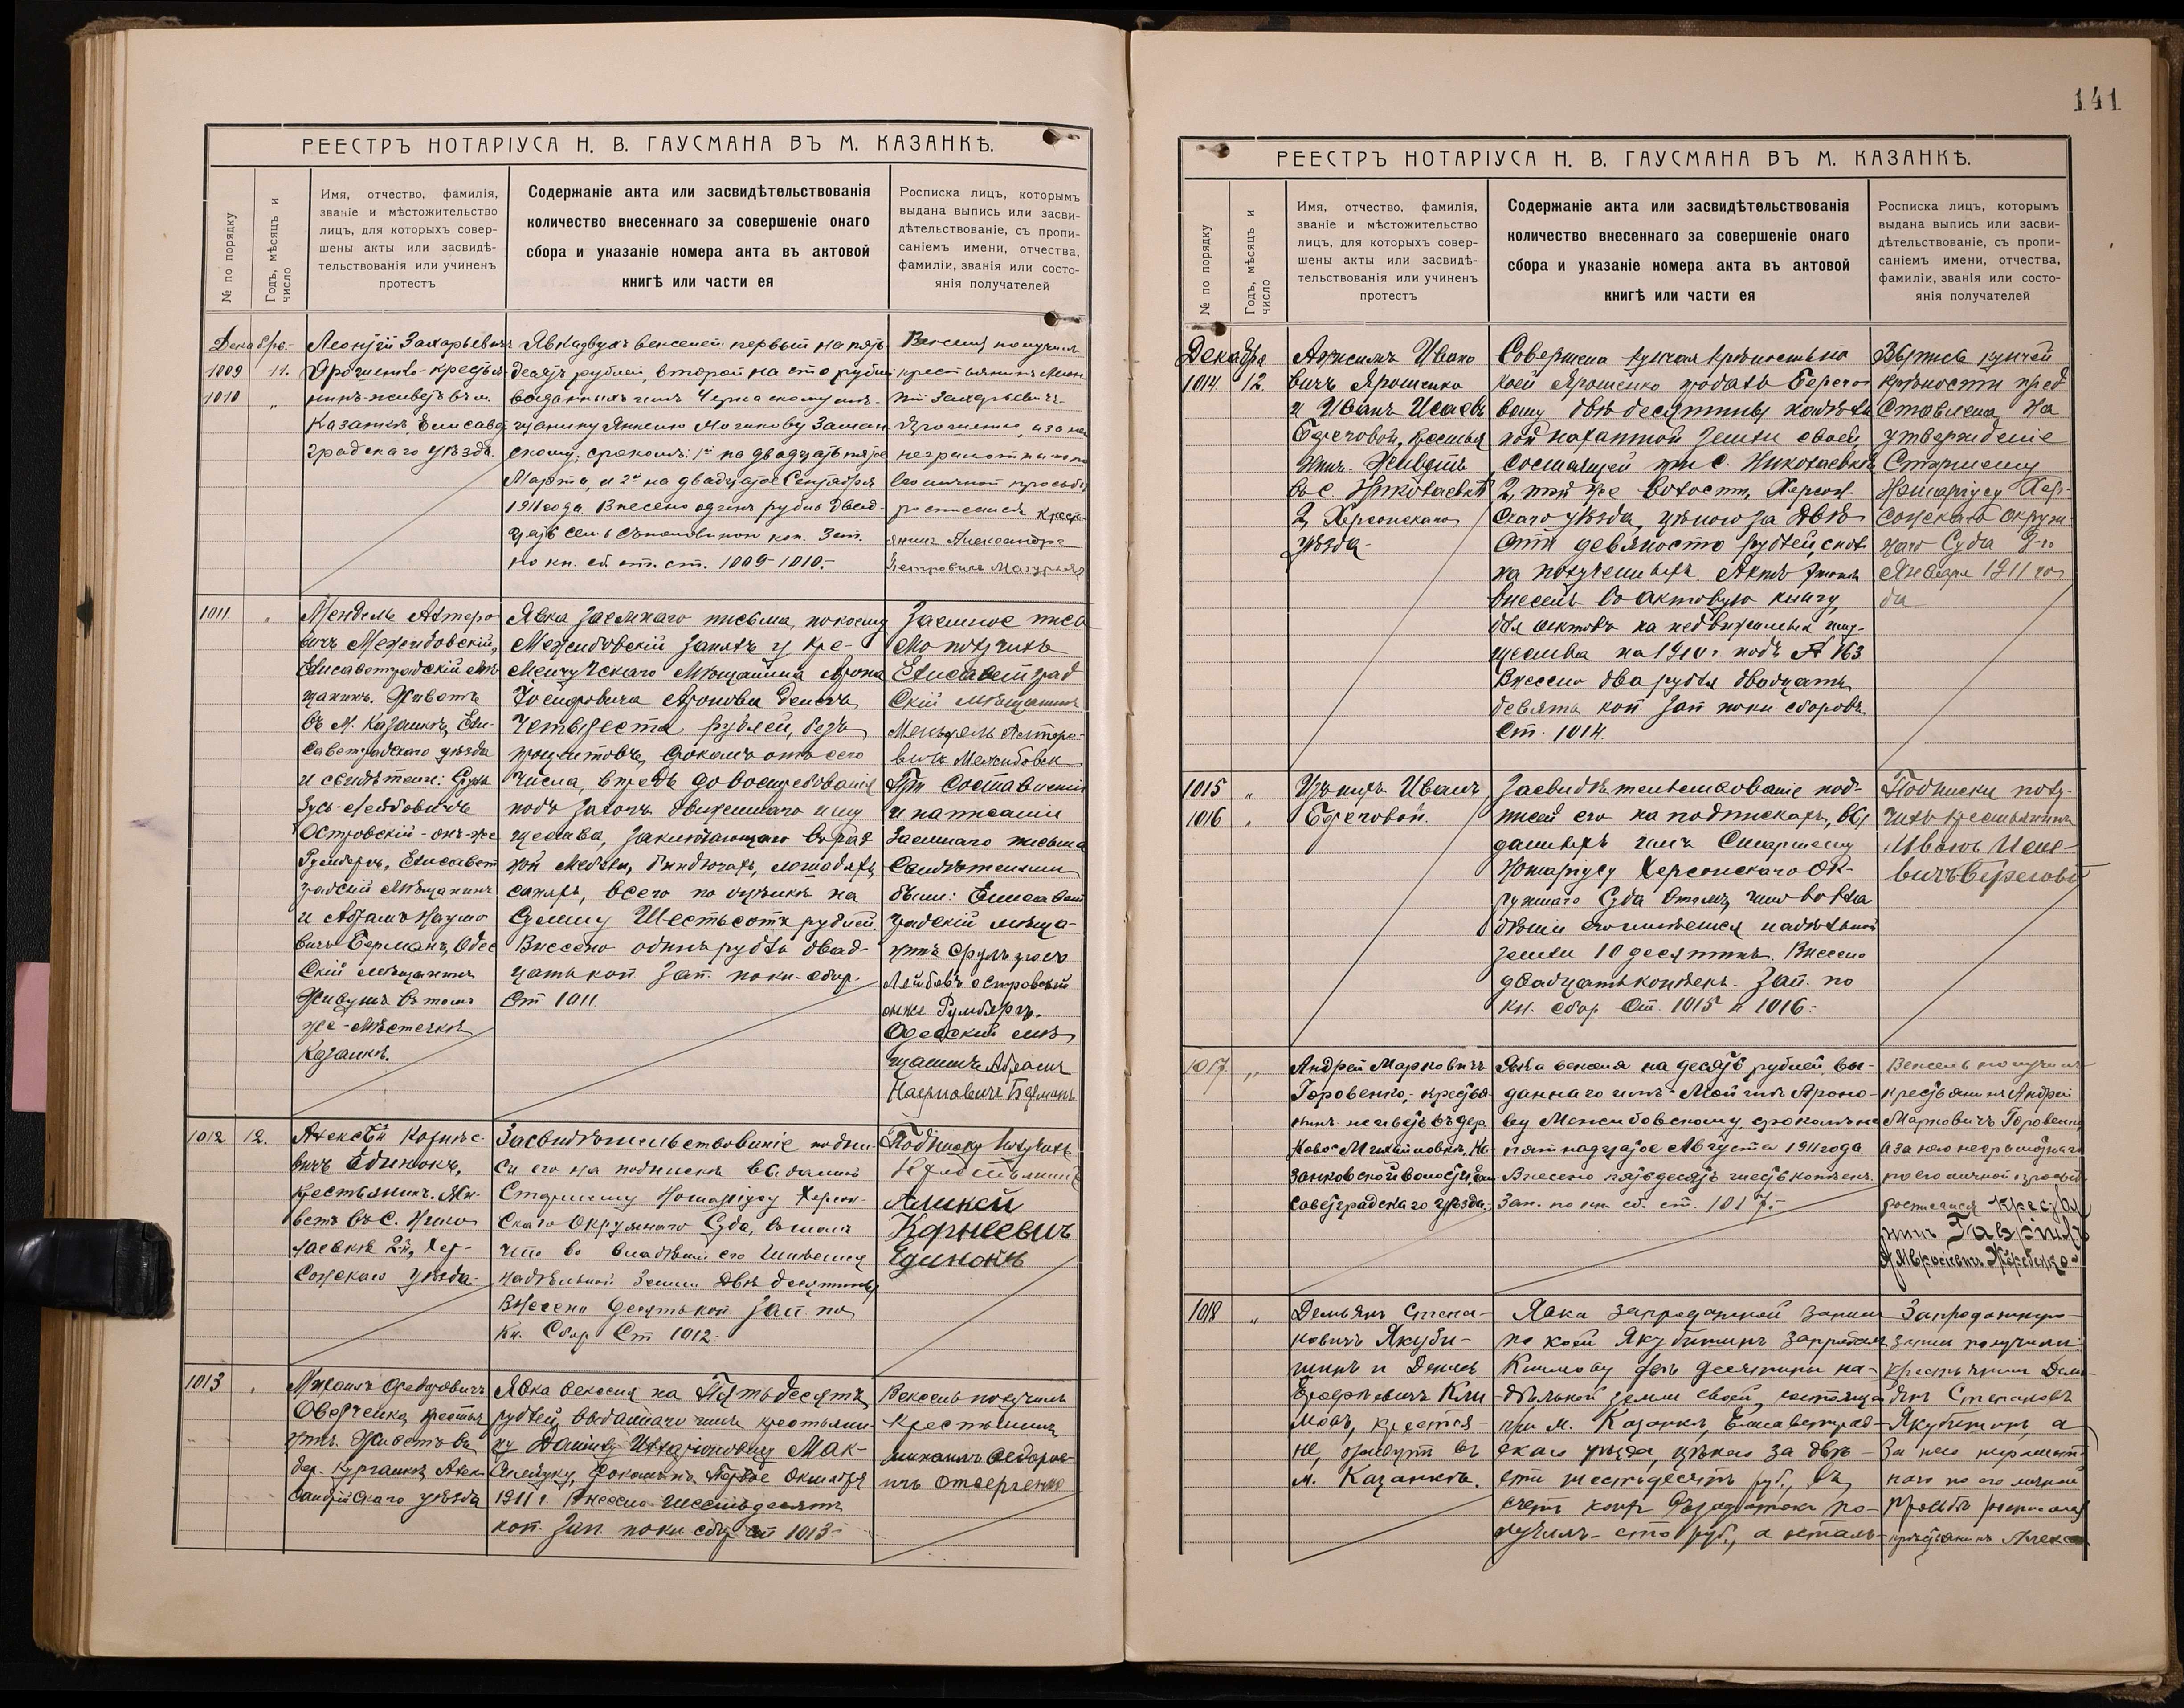 РЕЕСТРЪ НОТАРІУСА Н. В. ГАУСМАНА ВЪ М. КАЗАНКѢ.
№ по порядку
Годъ, мѣсяцъ и
число
Имя, отчество, фамилія,
званіе и мѣстожительство
лицъ, для которыхъ совер-
шены акты или засвидѣ-
тельствованія или учиненъ
протестъ
Содержаніе акта или засвидѣтельствованія
количество внесеннаго за совершеніе онаго
сбора и указаніе номера акта въ актовой
книгѣ или части ея
Росписка лицъ, которымъ
выдана выпись или засви-
дѣтельствованіе, съ пропи-
саніемъ имени, отчества,
фамиліи, званія или состо-
янія получателей
Декабрь.
1009 11.
1010 "
Леонтій Захарьевичъ
крестья-
нинъ живетъ въ м.
Казанкѣ, Елисавет-
градскаго уѣзда.
Явка двухъ векселей первый на пять-
десятъ рублей, второй на сто рублей
выданныхъ имъ
срокомъ: 1й на двадцать пятое
Марта, и 2й на двадцатое Сентября
1911 года Внесено одинъ рубль двад-
цать семь съ половиною коп. Зап.
по кн. сб. ст. ст. 1009-1010.-
Векселя получилъ
крестьянинъ
Захарьевичъ
а за него
неграмотнаго
по личной просьбѣ
росписался кресть-
янинъ Александръ
Петровичъ
1011 "
Мендель
вичъ Межибовскій,
Елисаветградскій мѣ-
щанинъ. Живетъ
въ м. Казанкѣ, Ели-
саветградскаго уѣзда
и свидѣтели:
Лейбовичъ
Островскій - онъ-же
Румбергъ, Елисавет
градскій мѣщанинъ
и Абрамъ Наумо
вичъ Берманъ, Одес
скій мѣщанинъ
Живутъ въ томъ
же - мѣстечкѣ
Казанкѣ.
Явка заемнаго письма, по коему
Межибовскій занялъ у Кре-
менчугскаго мѣщанина Арона
Аронова денегъ
Четыреста рублей, безъ
процентовъ, срокомъ отъ сего
числа, впредь до востребованія
подъ залогъ движимаго иму
щества, заключающаго въ раз
ной мебели, лошадяхъ,
всего по оцѣнкѣ на
сумму Шестьсотъ рублей.
Внесено одинъ рубль двад-
цать коп Зап. по кн. сбор.
Ст 1011.
Заемное пись
мо получилъ
Елисаветград
скій мѣщанинъ
Мендель
вичъ Межибовск
При составленіи
и написаніи
Заемнаго письма
Свидѣтелями
были: Елисавет
градскій мѣща-
нинъ
Лейбовъ Островскій
онже Румбергъ.
Одесскій мѣ
щанинъ Абрамъ
Наумовичъ Берманъ
1012 12.
Алексѣй Корнѣе-
вичъ Единокъ,
крестьянинъ. Жи-
ветъ въ с. Нико
лаевкѣ 2й, Хер-
сонскаго уѣзда.
Засвидѣтельствованіе подпи
си его на подпискѣ выданной
Старшему Нотаріусу Херсон-
скаго Окружнаго Суда, въ томъ
что во владѣніи его имѣется
надѣльной земли двѣ десятины
Внесено десять коп Зап по
Кн. Сбор Ст 1012.
Подписку получилъ
Крестьянинъ
Алексей
Корнеевичъ
Единокъ
1013 "
Михаилъ Федоровичъ
Оверченко, крестья
нинъ. Живетъ въ
дер. Курганкѣ Алек-
сандрійскаго уѣзда
Явка векселя на Пятьдесятъ
рублей, выданнаго имъ крестьяни-
ну Даниилу Илларіоновичу Мак-
срокомъ на Первое Октября
1911 г. Внесено Шестьдесятъ
коп. Зап. по кн сбор ст 1013.
Вексель получилъ
Крестьянинъ
Михаилъ Федоров-
ичъ Оверченко
141
РЕЕСТРЪ НОТАРІУСА Н. В. ГАУСМАНА ВЪ М. КАЗАНКѢ.
№ по порядку
Годъ, мѣсяцъ и
число
Имя, отчество, фамилія,
званіе и мѣстожительство
лицъ, для которыхъ совер-
шены акты или засвидѣ-
тельствованія или учиненъ
протестъ
Содержаніе акта или засвидѣтельствованія
количество внесеннаго за совершеніе онаго
сбора и указаніе номера акта въ актовой
книгѣ или части ея
Росписка лицъ, которымъ
выдана выпись или засви-
дѣтельствованіе, съ пропи-
саніемъ имени, отчества,
фамиліи, званія или состо-
янія получателей
Декабря
1014 12.
Ивано
вичъ Ярошенко
и Иванъ Исаевъ
Береговой, крестья
не. Живутъ
въ с. Николаевкѣ
2, Херсонскаго
уѣзда.
Совершена купчая крѣпость по
коей Ярошенко продалъ Берего
вому двѣ десятины надѣль
ной пахатной земли своей,
состоящей при с. Николаевкѣ
2, той же волости, Херсон-
скаго уѣзда, цѣною за двѣ
сти девяносто рублей, спол
на полученныхъ. Актъ этотъ
внесенъ въ актовую книгу
для актовъ на недвижимыя иму-
щества на 1910 г. подъ № 163
Внесено два рубля двадцать
девять коп. Зап по кн сборовъ
Ст. 1014.
Выпись купчей
крѣпости пред
ставлена на
утвержденіе
Старшему
Нотаріусу Хер-
сонскаго Окруж
наго Суда
Января 1911 го
да
1015 "
1016 "
Иванъ
Береговой.
Засвидѣтельствованіе под-
писей его на подпискахъ, вы
данныхъ имъ Старшему
Нотаріусу Херсонскаго Ок-
ружнаго Суда въ томъ, что во вла
дѣніи его имѣется надѣльной
земли 10 десятинъ. Внесено
двадцать копѣекъ. Зап. по
кн. сбор Ст. 1015 и 1016.
Подписки полу-
чилъ крестьянинъ
Иванъ Исае-
вичъ Береговой
1017 "
Андрей Марковичъ
Горовенко, крестья
нинъ живетъ въ дер.
Ново Михайловкѣ, Ка-
занковской волости Ели
саветградскаго уѣзда.
Явка векселя на десять рублей, вы-
даннаго имъ
ву Межибовскому срокомъ на
пятнадцатое Августа 1911 года
Внесено пятьдесятъ шесть копѣекъ.
Зап. по кн. сб. ст. 1017.-
Вексель получилъ
крестьянинъ Андрей
Марковичъ Горовенко
а за него неграмотнаго
по его личной просьбѣ
росписался кресть
янинъ Гавріилъ
1018 "
Демьянъ Степа-
новичъ Якуби-
шинъ и Денисъ
Кли
мовъ, крестья-
не, живутъ въ
м. Казанкѣ.
Явка запродажной записи
по коей Якубишинъ запродалъ
Климову двѣ десятины на-
дѣльной земли своей, состоящей
при м. Казанкѣ, Елисаветград-
скаго уѣзда, цѣною за двѣ-
сти шестьдесятъ руб., въ
счетъ коихъ въ задатокъ по-
лучилъ - сто руб., а осталь-
Запродажную
запись получили
крестьянинъ Демь
янъ Степановъ
Якубишинъ, а
за него неграмот
наго по его личной
просьбѣ росписался
крестьянинъ Алекс